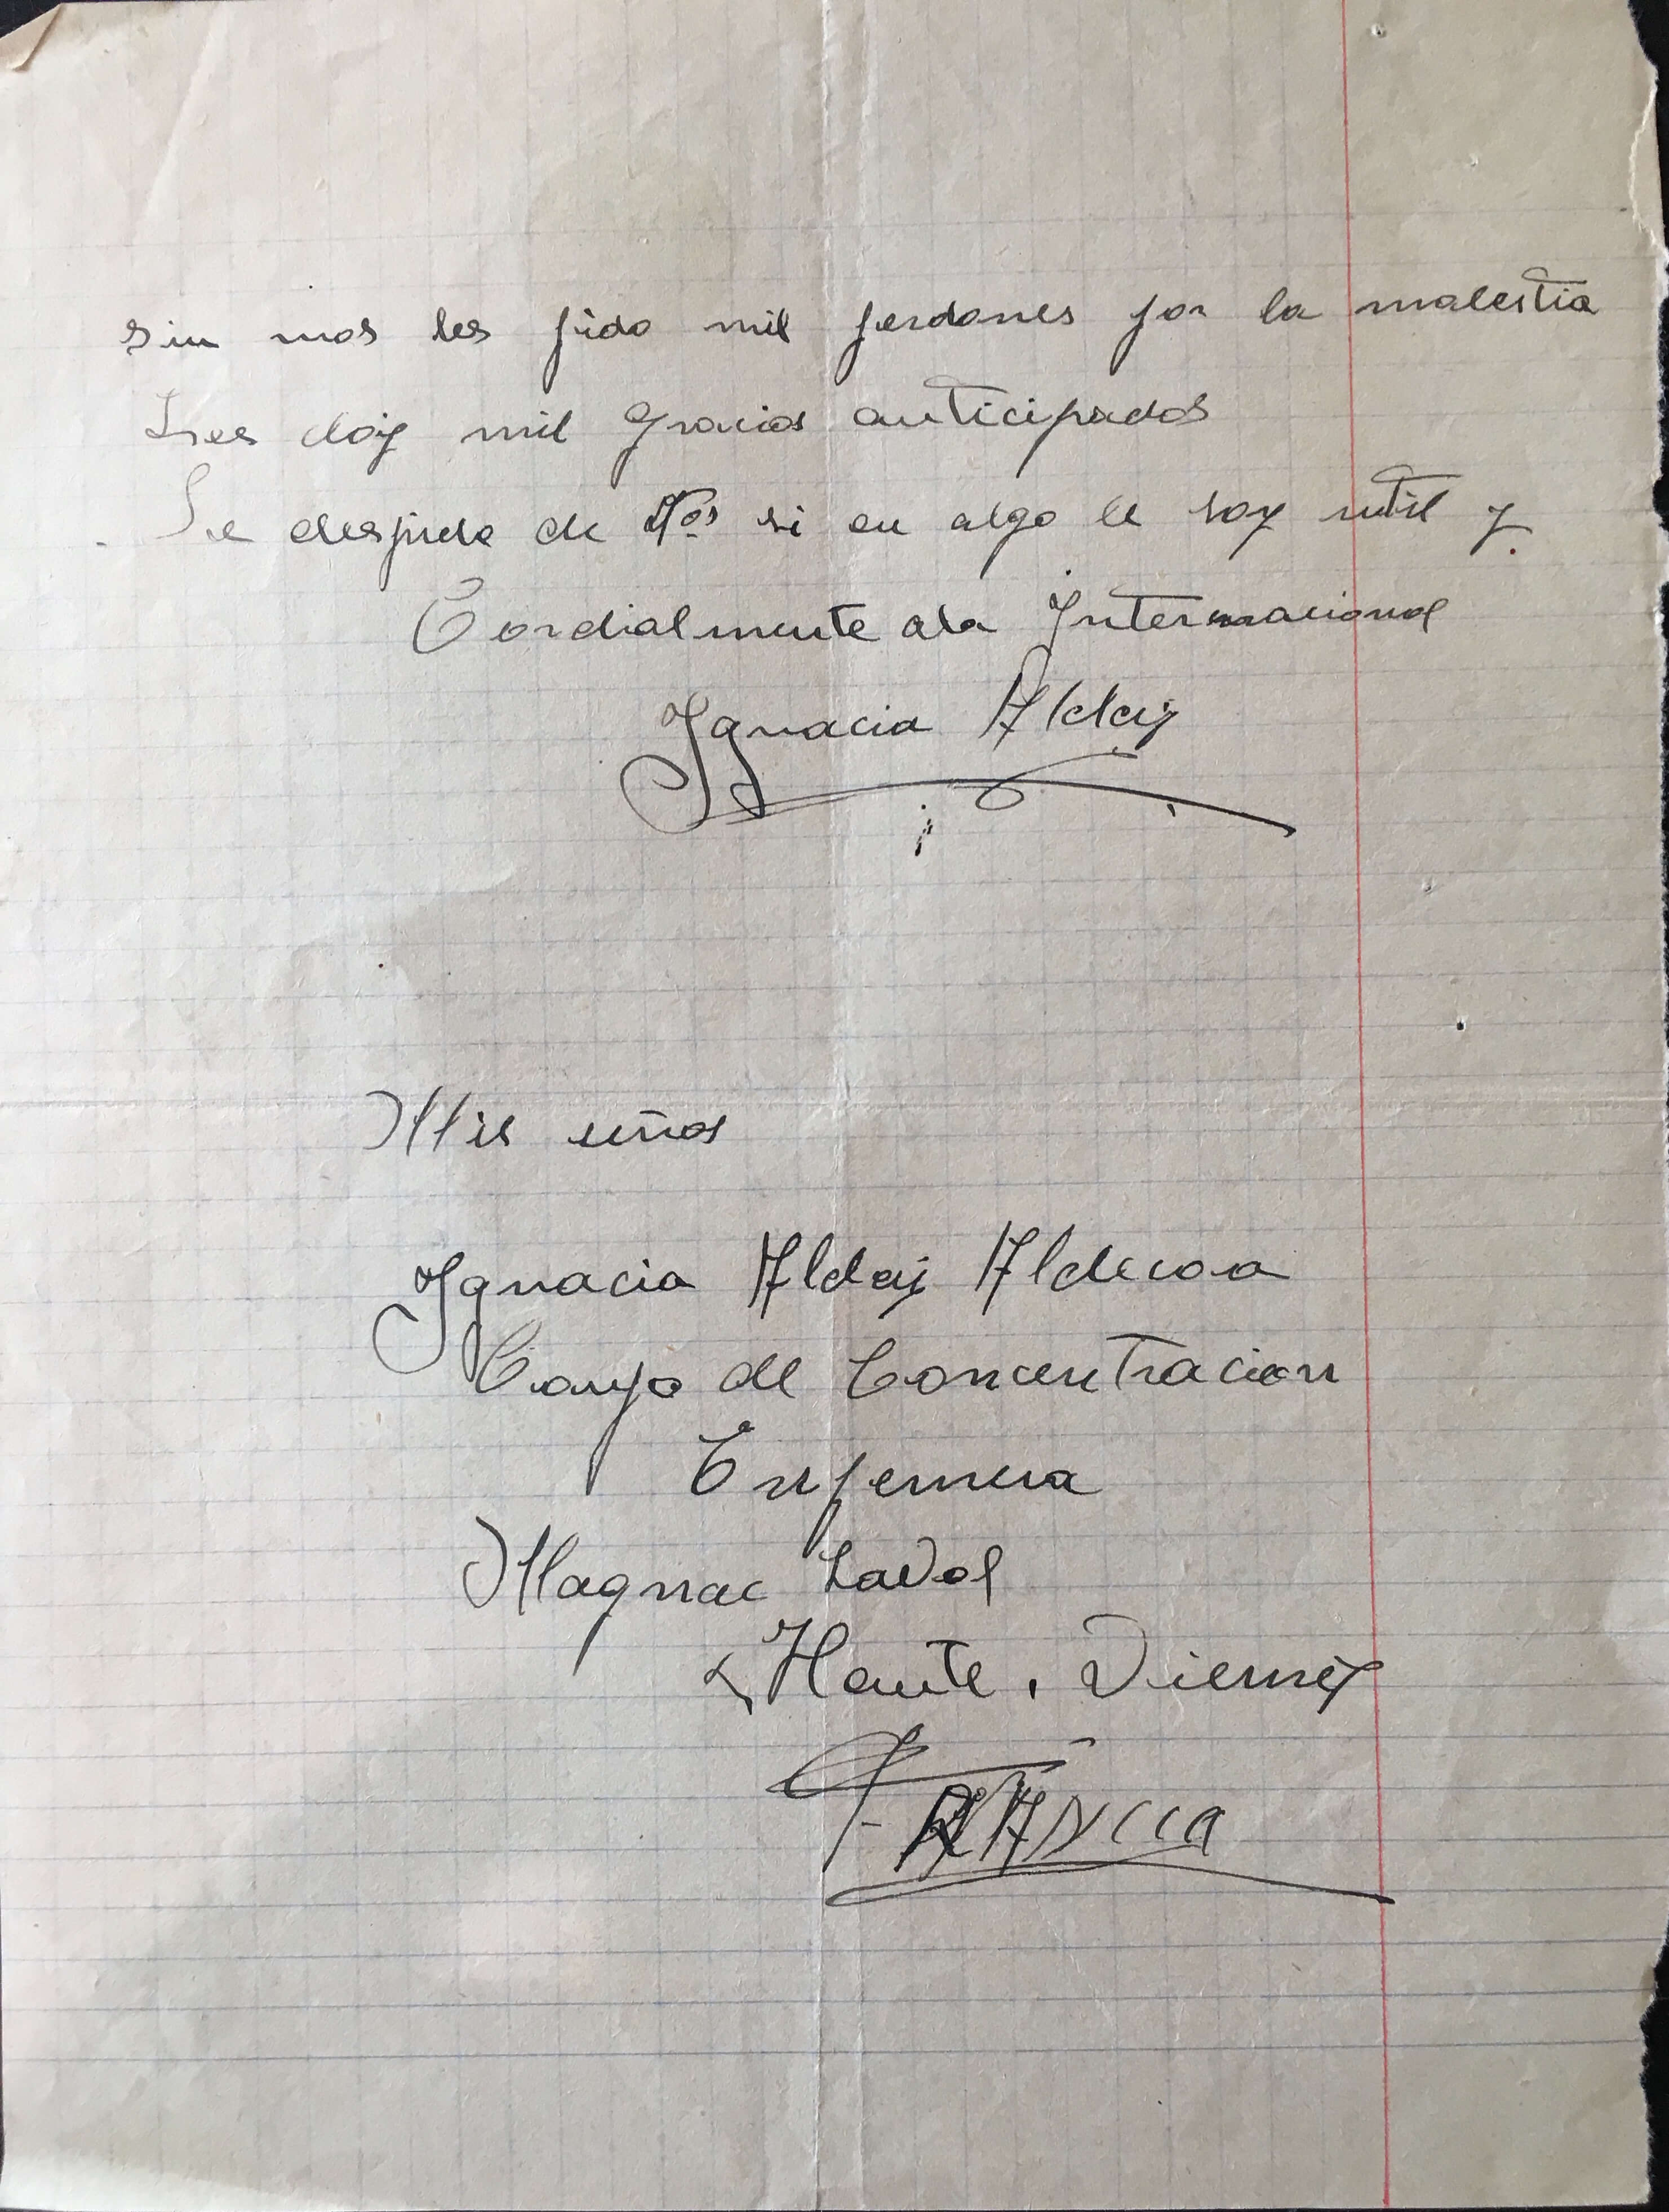 sin mas les pido mil perdones por la malestia
Les doy mil gracias anticipadas
Se despide de Vds si en algo le soy util y
Cordialmente ala Internacional
Ignacia Alday
Mis señas
Ignacia Alday Aldecoa
Campo de Concentracion
Enfermera
Magnac Laval
Haute, Vienne
FRANCIA